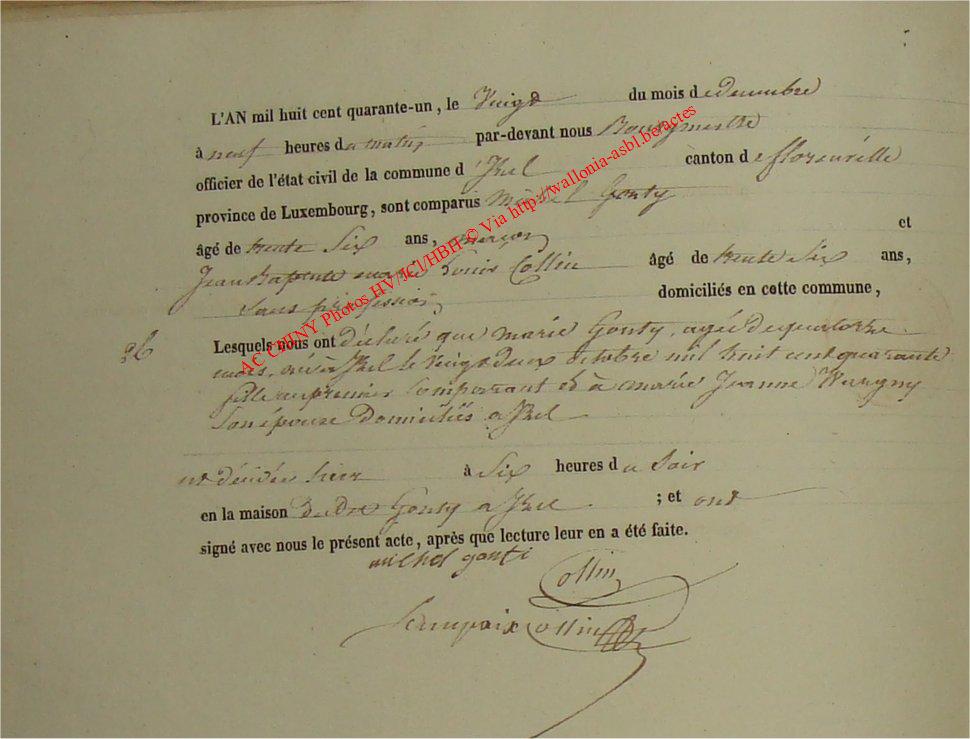 L'AN mil huit cent quarante-un, le Vingt du mois de decembre
à neuf heures du matin par-devant nous Bourgmestre
officier de l'état civil de la commune d'Izel canton de florenville
province de Luxembourg, sont comparus Michel Gonty
âgé de trente Six ans, maçon et
Jean Baptiste Louis Collin âgé de trente Six ans,
Sans profession domiciliés en cette commune,
36 Lesquels nous ont déclaré que marie Gonty, agée de quatorze
mois, née à Izel le Vingt deux octobre mil huit cent quarante
fille du premier Comparant et à marie Jeanne
Son épouse Domiciliés a Izel
est décédée hier à Six heures du Soir
en la maison dudit Gonty a Izel ; et ont
signé avec nous le présent acte, après que lecture leur en a été faite.
michel gonti
Collin
Collin
AC CHINY Photos HV/JCl/HBH © Via http://wallonia-asbl.be/actes